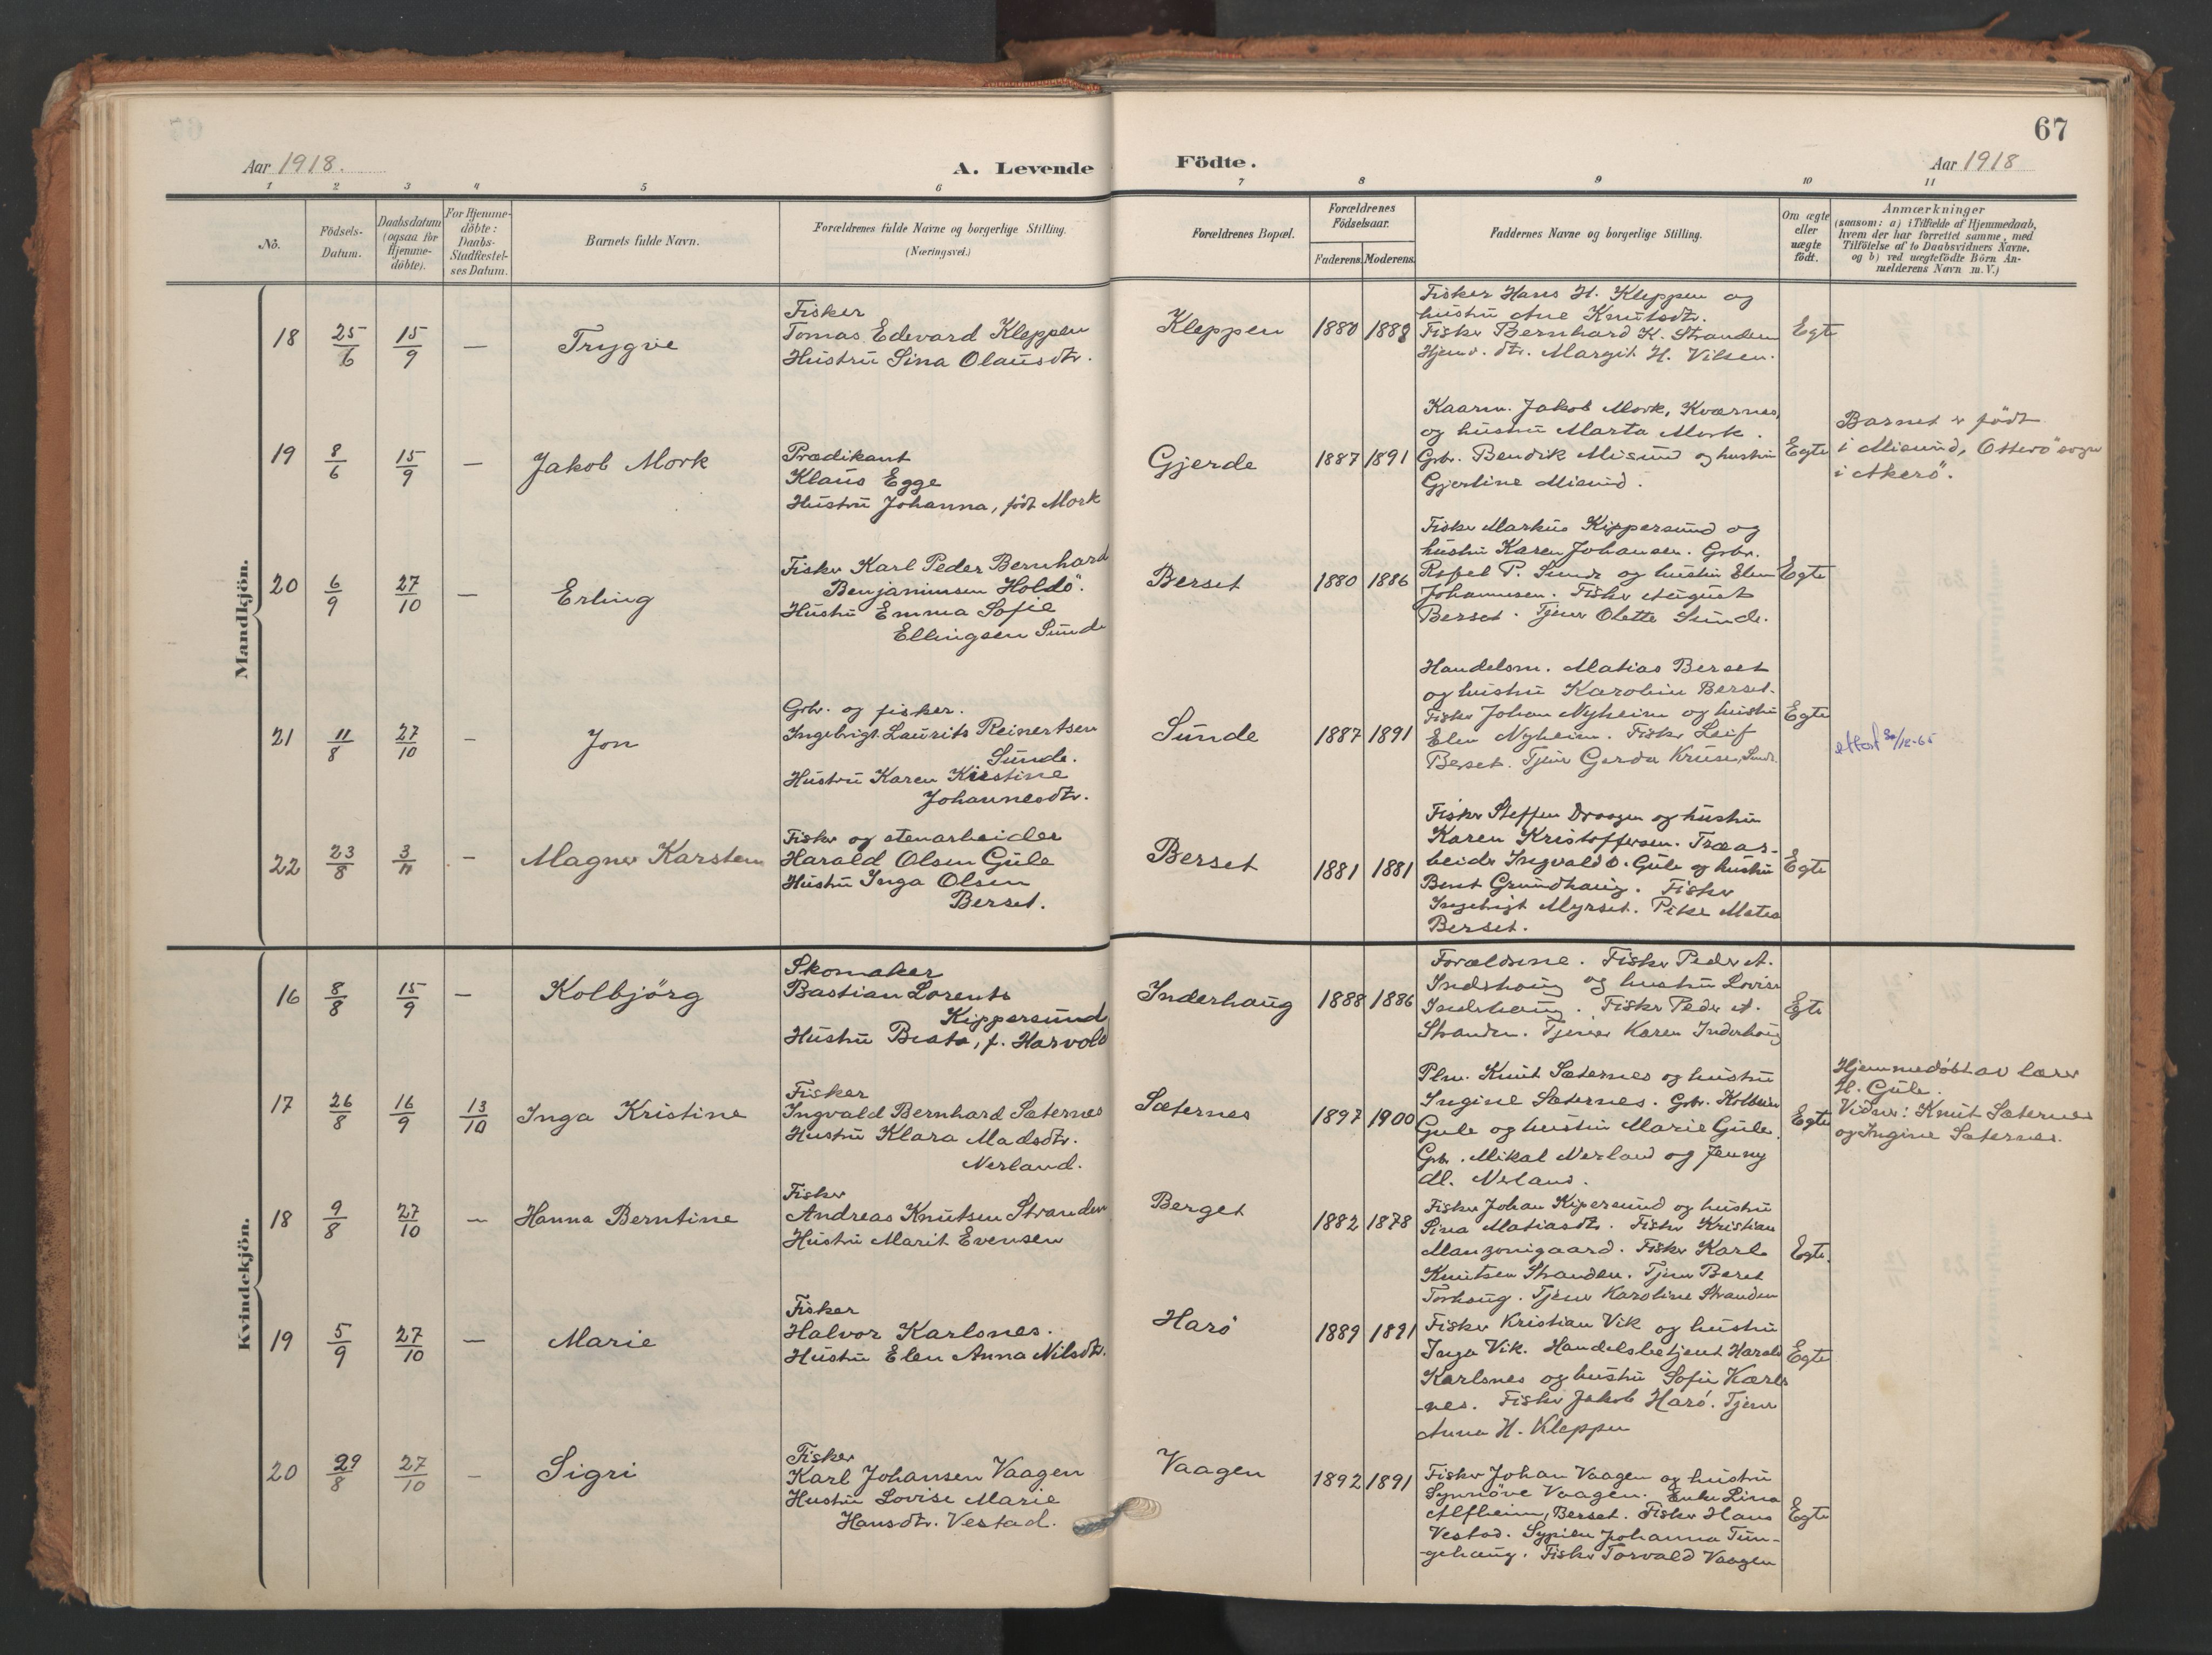 67
Aar 1918.
A. Levende Födte.
Aar 1918
1 2 3 4 5 6 7 8 9 10 11
No.
Födsels-
Datum.
Daabsdatum
(ogsaa for
Hjemme-
döbte).
For Hjemme-
döbte:
Daabs-
Stadfæstel-
ses Datum.
Barnets fulde Navn.
Forældrenes fulde Navne og borgerlige Stilling.
(Næringsvei.)
Forældrenes Bopæl.
Forældrenes
Födselsaar.
Faderens. Moderens.
Faddernes Navne og borgerlige Stilling.
Om ægte
eller
uægte
födt.
Anmærkninger
(saasom: a) i Tilfælde af Hjemmedaab,
hvem der har forrettet samme, med
Tilföielse af to Daabsvidners Navne.
og b) ved uægtefödte Börn An-
melderens Navn m. V.)
Mandkjön.
18 25/6 15/9 — Trygve
Fisker
Tomas Edevard Kleppen
Hustru Sina Olausdtr.
Kleppen 1880 1888
Fisker Hans H. Kleppen og
hustru Ane Knutsdtr.
Fisker Bernhard K. Stranden
Hjemv. dtr. Margit H. Vilsen.
Egte
19 8/6 15/9 — Jakob Mork
Prædikant
Klaus Egge
Hustru Johanna, født Mork
Gjerde 1887 1891
Kaarm. Jakob Mork, Kværnes,
og hustru Marta Mork.
Grbr. Bendik Misund og hustru
Gjertine Misund.
Egte
Barnet er født
i Misund, Otterø sogn
i Akerø.
20 6/9 27/10 — Erling
Fisker Karl Peder Bernhard
Benjaminsen Holdö.
Hustru Emma Sofie
Ellingsen Sunde
Berset 1880 1886
Fisker Markus Kippersund og
hustru Karen Johansen. Grbr.
P. Sunde og hustru Elen
Johannesen. Fisker August
Berset. Tjener Olette Sunde.
Egte
21 11/8 27/10 — Jon
Grbr. og fisker.
Ingebrigt Laurits Reinertsen
Sunde.
Hustru Karen Kristine
Johannesdtr.
Sunde 1887 1891
Handelsm. Matias Berset
og hustru Karoline Berset.
Fisker Johan Nyheim og hustru
Elen Nyheim. Fisker Leif
Berset. Tjener Gerda Kruse, Sunde.
Egte
attest 30/12-65
22 23/8 3/11 — Magner Karsten
Fisker og stenarbeider
Harald Olsen Gule
Hustru Inga Olsen
Berset.
Berset 1881 1881
Fisker Steffen Draagen og hustru
Karen Kristoffersen. Træar-
beider Ingvald O. Gule og hustru
Berit Grundhaug. Fisker
Ingebrigt Myrset. Pike Matea
Berset.
Egte
Kvindekjön.
16 8/8 15/9 — Kolbjörg
Skomaker
Bastian Lorents
Kippersund
Hustru Beata, f. Harvold
Inderhaug 1888 1886
Forældrene. Fisker Peder A.
Inderhaug og hustru Lovise
Inderhaug. Fisker Peder A.
Stranden. Tjener Karen Inderhaug
Egte
17 26/8 16/9 13/10 Inga Kristine
Fisker
Ingvald Bernhard Sæternes
Hustru Klara Madsdtr.
Nerland.
Sæternes 1897 1900
Plm. Knut Sæternes og hustru
Ingine Sæternes. Grbr. Kolbein
Gule og hustru Marie Gule.
Grbr. Mikal Nerland og Jenny
M. Nerland.
Egte
Hjemmedøbt av lærer
H. Gule.
Vidner: Knut Sæternes
og Ingine Sæternes.
18 9/8 27/10 — Hanna Berntine
Fisker
Andreas Knutsen Stranden
Hustru Marit Evensen
Berget 1882 1878
Fisker Johan Kipersund og hustru
Sina Matiasdtr. Fisker Kristian
Manzonigaard. Fisker Karl
Knutsen Stranden. Tjener Beret
Torhaug. Tjener Karoline Stranden
Egte.
19 5/9 27/10 — Marie
Fisker
Halvor Karlsnes.
Hustru Elen Anna Nilsdtr.
Harö 1889 1891
Fisker Kristian Vik og hustru
Inga Vik. Handelsbetjent Harald
Karlsnes og hustru Sofie Karls-
-nes. Fisker Jakob Harö. Tjener
Anna H. Kleppen
Egte
20 29/8 27/10 — Sigri
Fisker
Karl Johansen Vaagen
Hustru Lovise Marie
Hansdtr. Vestad.
Vaagen 1892 1891
Fisker Johan Vaagen og hustru
Synnöve Vaagen. Enke Lina
Alfheim, Berset. Fisker Hans
Vestad. Sypike Johanna Tun-
gehaug. Fisker Torvald Vaagen
Egte